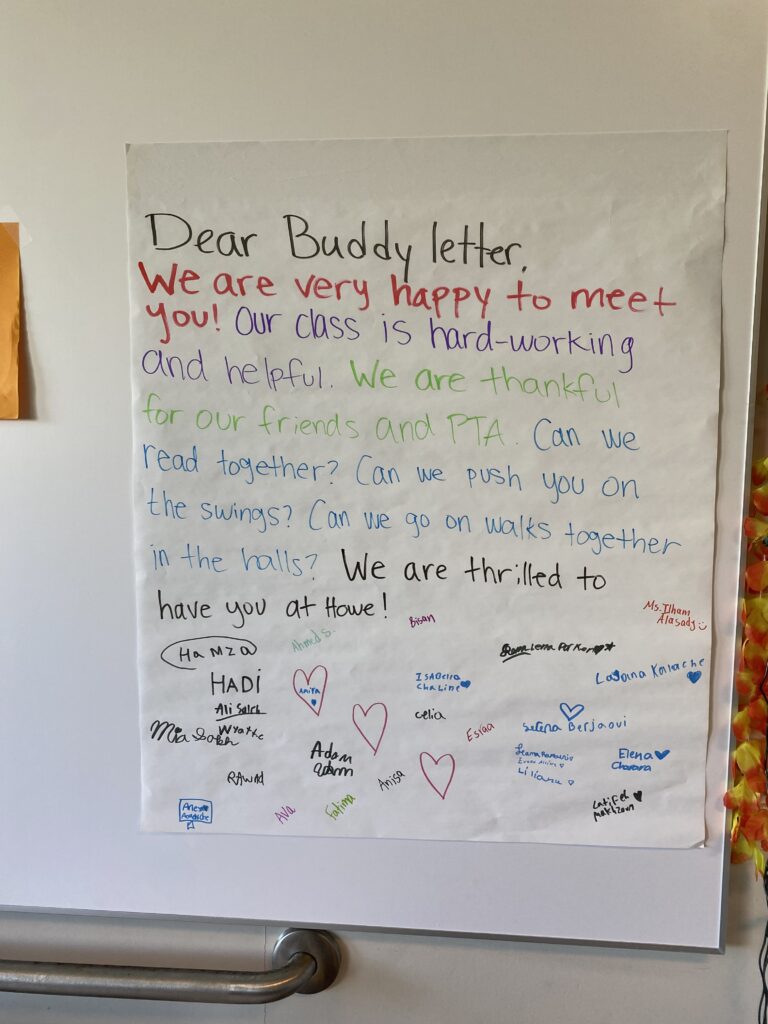 Dear Buddy letter,
We are very happy to meet
you! Our class is hard-working
and helpful. We are thankful
for our friends and PTA. Can we
read together? Can we push you on
the swings? Can we go on walks together
in the halls? We are thrilled to
have you at Howe!
Ms. Ilham
Alasady
Bisan
Ahmed S.
HaMZa
HADI
Anisa
Isabella
Chaline
Ali Saleh
Wyatte
Mia Saleh
celia
Esraa
Selena Berjaoui
Adam
Adam
Liliana
Elena
Charara
RAWAD
Anisa
Latifeh
Makhzoum
Ava
Fatima